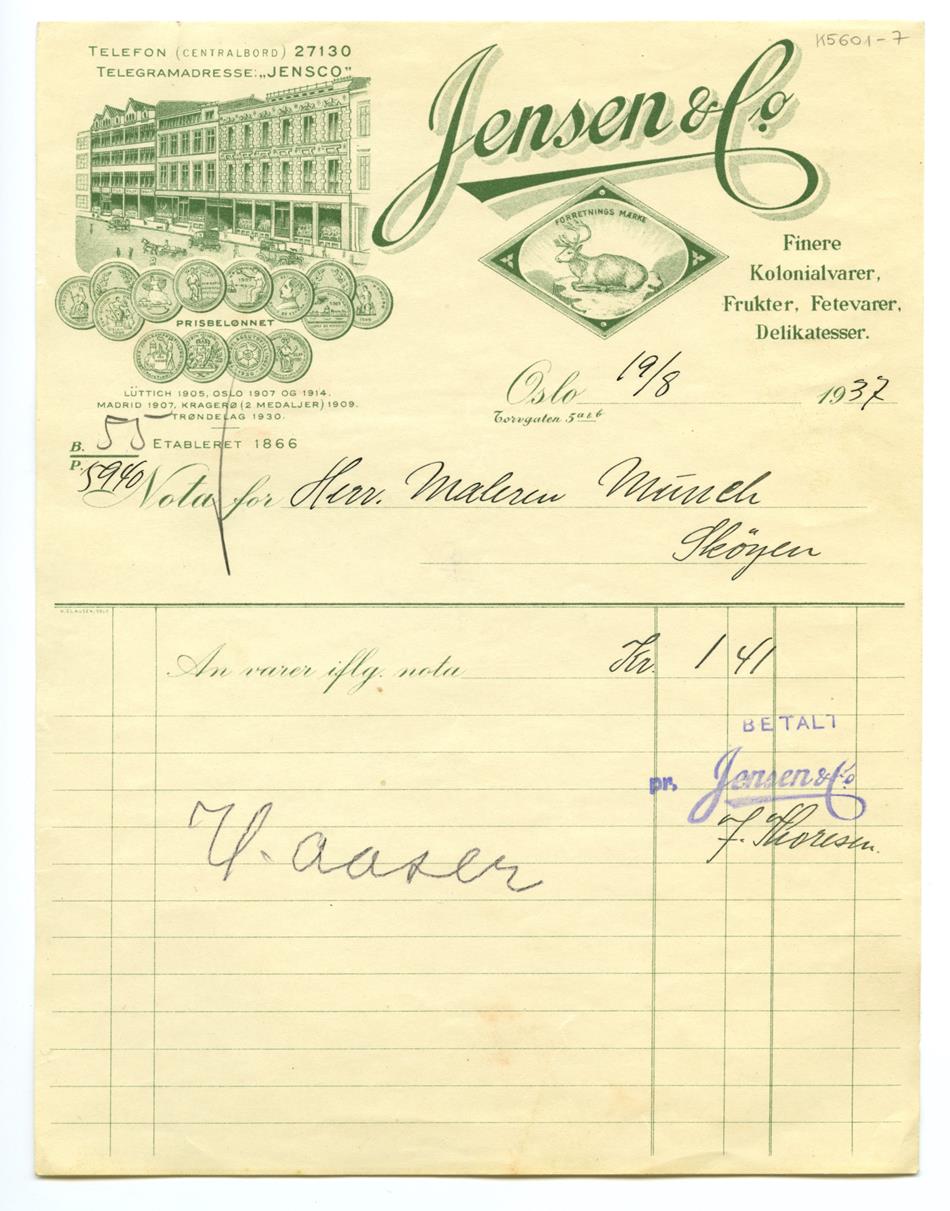 K5601-7
TELEFON (CENTRALBORD) 27130
TELEGRAMADRESSE: „JENSCO"
Jensen & Co.
FORRETNINGS MÆRKE
Finere
Kolonialvarer,
Frukter, Fetevarer,
Delikatesser.
PRISBELØNNET
LÜTTICH 1905, OSLO 1907 OG 1914.
MADRID 1907, KRAGERØ (2 MEDALJER) 1909.
TRØNDELAG 1930.
Oslo 19/8 1937
Torvgaten 5 a & b
B. 55 ETABLERET 1866
P. 5940
Nota for Herr. Maleren Münch
Sköyen
An varer iflg. nota Kr. 1 41
BETALT
pr. Jensen & Co.
F. Thoresen.
H. aaser